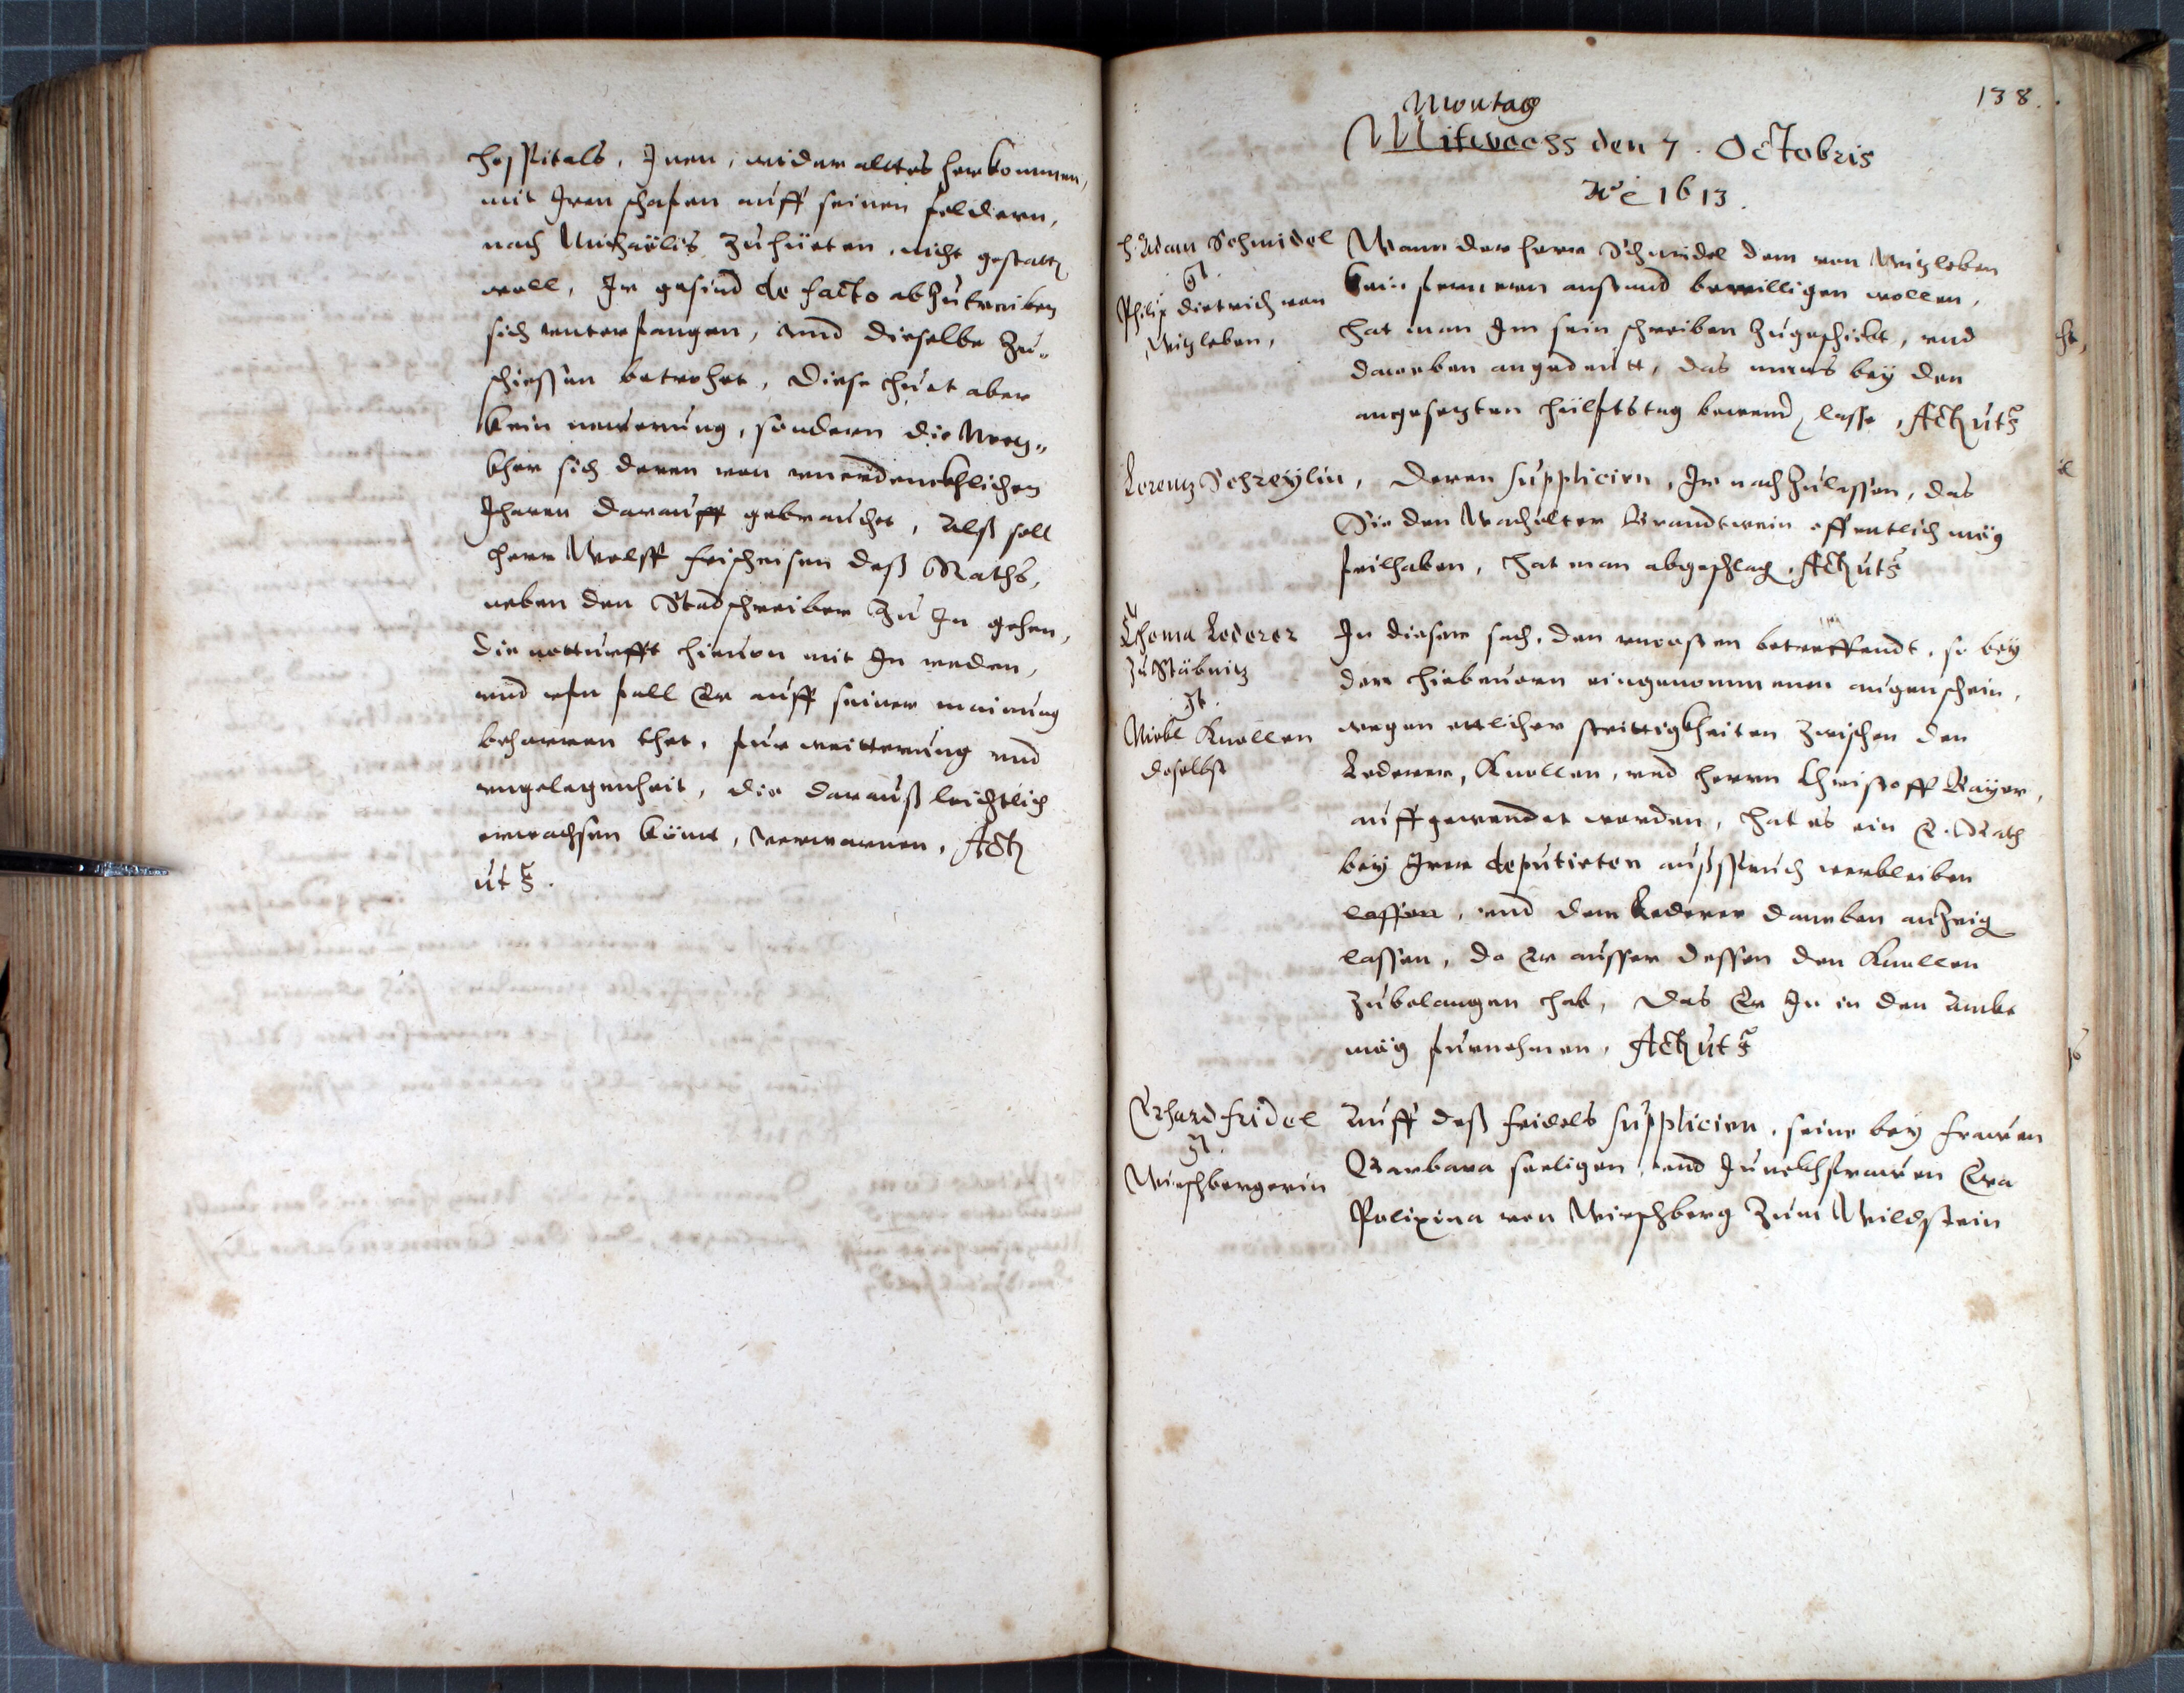 hospitals, Inen, wider alttes herkommen,
mit Iren schafen auff seinen feldern,
nach Michaëlis zuhüeten, nicht gestatt
woll, Ir gesind de facto abzutreiben
sich unterfangen, und dieselbe zu„
schiessen betrohet, diese huet aber
kein neuerung, sondern die
sich deren von unerdenckhlichen
Iharen darauff gebrauchet, Alß soll
herr Wolff frischeisen deß Raths,
neben den Stadschreiber zu Im gehen,
die notturfft hieuon mit Im reden,
und ufm fall Er auff seiner mainung
beharren thet, fur weitterung und
ungelegenheit, die darauß leichtlich
erwachsen könt, verwarnen. Act
ut s.
138.
Montag
Mitwochss den 7. Octobris
Ao 1613.
h. Adam Schmidel
Philip dietrich von
Witzleben,
Wann der herr Schmidel dem von Witzleben
kein fernern anstand bewilligen wollen,
hat man Im sein schreiben zugeschickt, und
daneben angedeutt, das mans bey den
angesetzten hülfstag bewend lasse, Act ut s
Lorentz Schreylin, deren suppliciren, Ir nachzulassen, das
Sie den Wacholter Brandtwein offentlich mög
feilhaben, hat man abgeschlag. Act ut s
Thoma Lederer
zu Stäbnitz
Nickl Knollen
daselbst
In dieser sach, den uncosten betreffendt, so bey
dem hiebeuorn eingenommenen augenschein,
wegen ettlicher strittigkheiten zwischen den
Lederer, Knollen, und herrn Christoff Bayer,
auffgewendet worden, hat es ein E. Rath
bey Irer deputirten außspruch verbleiben
lassen, und dem Lederer daneben anzeig
lassen, da Er ausser dessen den Knollen
zubelangen hab, das Er In in den Ambt
mög furnehmen, Act ut s
Erhard fridel
Wirschbergerin
Auff deß fridels suppliciren, seine bey frauen
Barbara seeligen, und Junckhfrauen Eva
Polixina von Wirschberg zum Wildstein